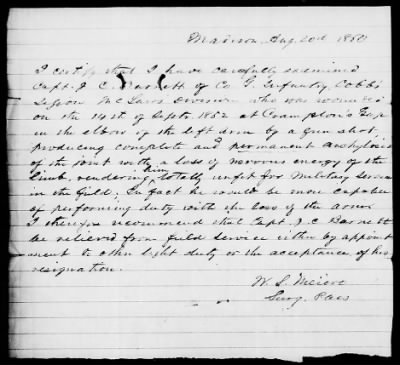 Madison Aug 20d 1860
I certify that I have carefully examined
Capt. J. C. Barnett of Co G. Infantry, Cobb's
Legion McLaws Division who was wounded
on the 14th of Septr 1862 at Crampton's Gap
in the elbow of the left arm by a gun shot,
producing complete and permanent anchylosis
of the joint with a loss of nervous energy of the
limb, rendering him totally unfit for Military Service
in the field, In fact he would be more capable
of performing duty with the loss of the arm
I therefore recommend that Capt. J. C Barnett
be relieved from field service either by appoint
ment to other light duty or the acceptance of his
resignation.
W. S.
Surg. Pacs